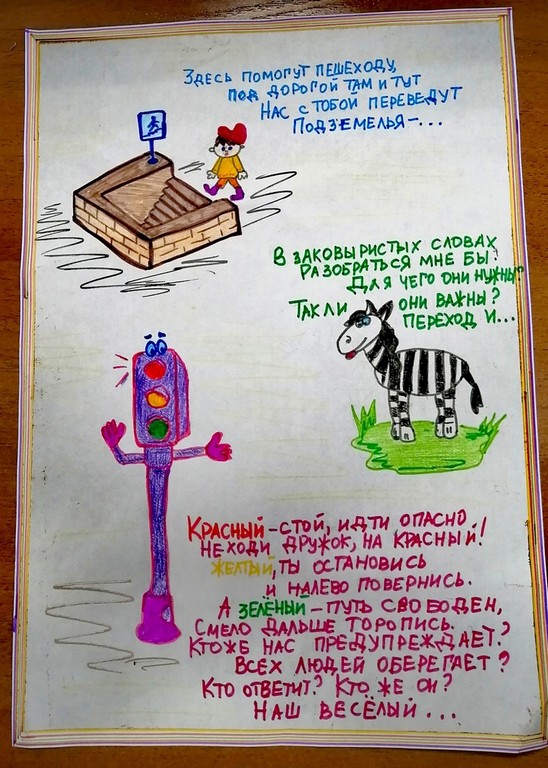 Здесь помогут пешеходу,
под дорогой там и тут
Нас с тобой переведут
Подземелья-...
В заковыристых словах
Разобраться мне бы.
Для чего они нужны?
Так ли они важны?
Переход и...
Красный-стой, идти опасно.
Не ходи дружок, на красный!
Желтый, ты остановись
и налево повернись.
А зелёный-путь свободен,
Смело дальше торопись.
Кто же нас предупреждает?
Всех людей оберегает?
Кто ответит? Кто же он?
Наш весёлый ...